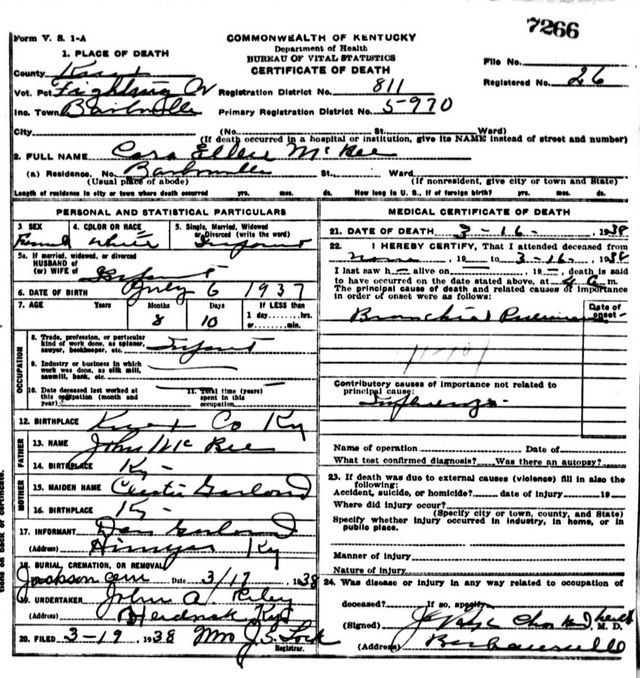 7266
Form V. S. 1-A
COMMONWEALTH OF KENTUCKY
Department of Health
BUREAU OF VITAL STATISTICS
CERTIFICATE OF DEATH
File No.
Registered No. 26
1. PLACE OF DEATH
County Knox
Vot. Pct Fighting Registration District No. 811
Inc. Town Barbourville Primary Registration District No. 5-970
City (No. St. Ward)
(If death occurred in a hospital or institution, give its NAME instead of street and number)
2. FULL NAME Cora Ellen McKee
(a) Residence. No. Barbourville St. Ward.
(Usual place of abode) (If nonresident, give city or town and State)
Length of residence in city or town where death occurred yrs. mos. ds. How long in U. S., if of foreign birth? yrs. mos. ds.
PERSONAL AND STATISTICAL PARTICULARS
3. SEX 4. COLOR OR RACE 5. Single, Married, Widowed or Divorced (write the word)
Female White Infant
5a. If married, widowed, or divorced
HUSBAND of
(or) WIFE of Infant
6. DATE OF BIRTH July 6 1937
7. AGE Months Days If LESS than
8 10 1 day,....hrs.
or....min.
OCCUPATION
8. Trade, profession, or particular
kind of work done, as spinner,
sawyer, bookkeeper, etc. Infant
9. Industry or business in which
work was done, as silk mill,
sawmill, bank, etc.
10. Date deceased last worked at
this occupation (month and
year)
11. Total time (years)
spent in this
occupation
12. BIRTHPLACE Knox Co Ky
FATHER
13. NAME John McKee
14. BIRTHPLACE Ky-
MOTHER
15. MAIDEN NAME Garland
16. BIRTHPLACE Ky-
17. INFORMANT Garland
(Address) Himyar Ky
18. BURIAL, CREMATION, OR REMOVAL
Jackson Cem Date 3/17 1938
19. UNDERTAKER John A. Riley
(Address) Ky
20. FILED 3-19 1938 Mrs J. S. Lock
Registrar.
MEDICAL CERTIFICATE OF DEATH
21. DATE OF DEATH 3-16- 1938
22. I HEREBY CERTIFY, That I attended deceased from
none, 19 to 3-16- 1938
I last saw h— alive on —, 19—, death is said
to have occurred on the date stated above, at 4 a m.
The principal cause of death and related causes of importance
in order of onset were as follows:
Date of
onset
Bronchial Pneumonia
Contributory causes of importance not related to
principal cause:
Influenza
Name of operation Date of
What test confirmed diagnosis? Was there an autopsy?
23. If death was due to external causes (violence) fill in also the
following:
Accident, suicide, or homicide? date of injury 19
Where did injury occur?
(Specify city or town, county, and State)
Specify whether injury occurred in industry, in home, or in
public place.
Manner of injury
Nature of injury
24. Was disease or injury in any way related to occupation of
deceased? If so, specify
(Signed) M. D.
(Address) Barbourville
tions on back of certificate.